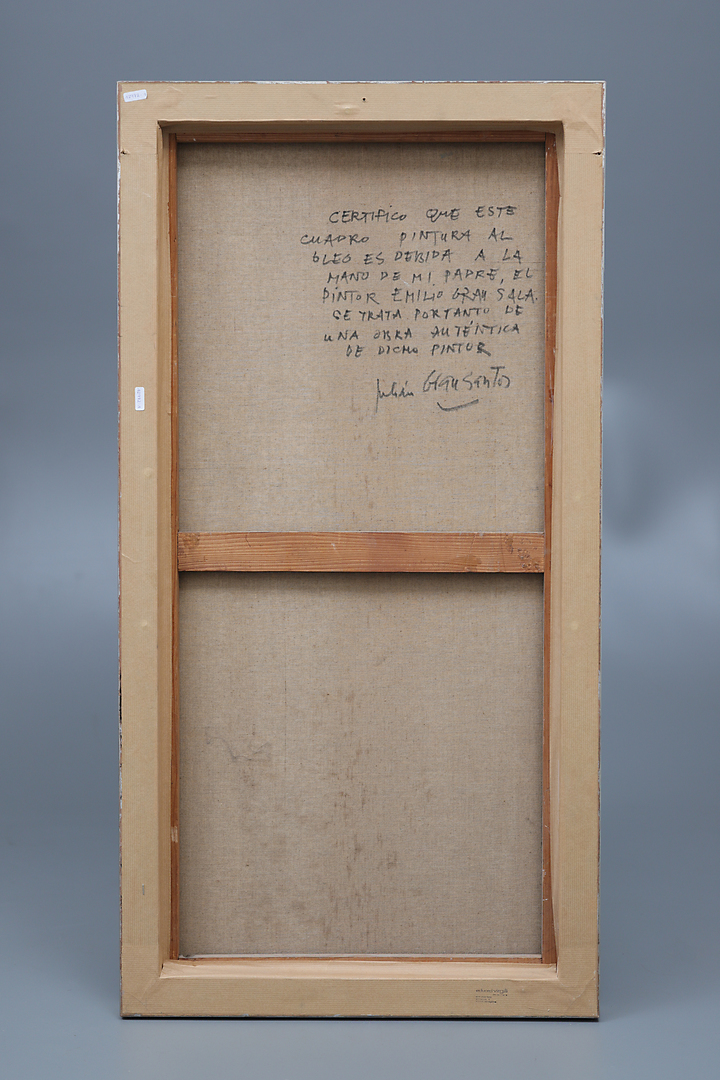 CERTIFICO QUE ESTE
CUADRO PINTURA AL
OLEO ES DEBIDA A LA
MANO DE MI PADRE, EL
PINTOR EMILIO GRAU SALA.
SE TRATA POR TANTO DE
UNA OBRA AUTÉNTICA
DE DICHO PINTOR
Julián Grau Santos